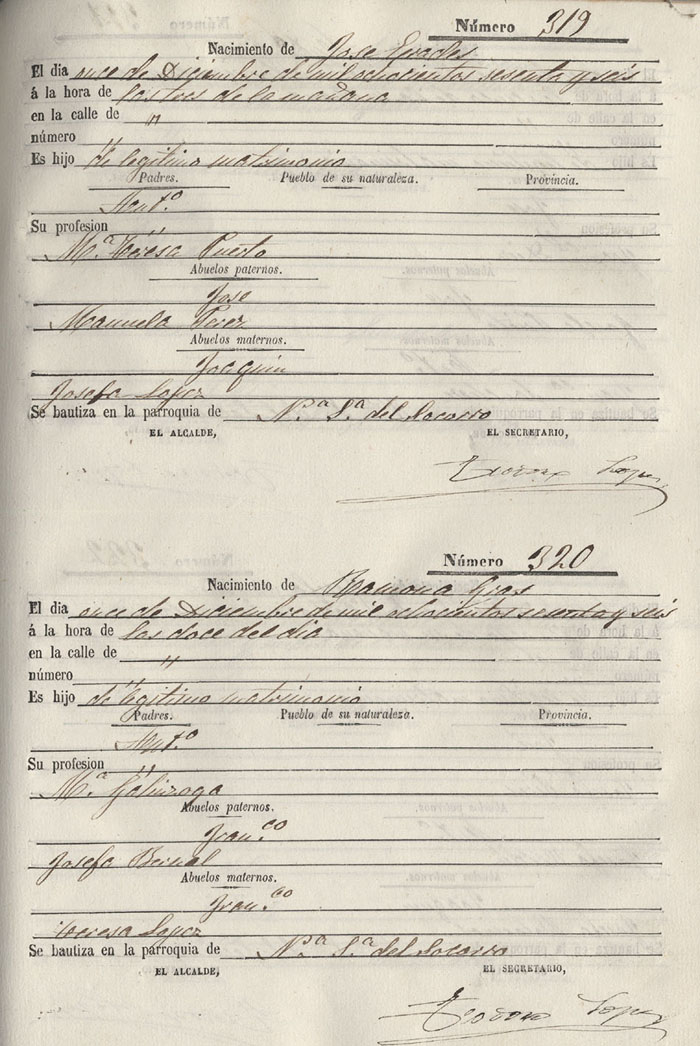 Número 319
Nacimiento de Jose Prades
El dia once de Diciembre de mil ochocientos sesenta y seis
á la hora de las tres de la mañana
en la calle de "
número "
Es hijo de legitimo matrimonio
Padres. Pueblo de su naturaleza. Provincia.
Ant.º
Su profesion "
M.ª Teresa Puerto
Abuelos paternos.
Jose
Manuela Perez
Abuelos maternos.
Joaquin
Josefa Lopez
Se bautiza en la parroquia de N.ª S.ª del Socorro
EL ALCALDE, EL SECRETARIO,
Lopez
Número 320
Nacimiento de Ramona Gras
El dia once de Diciembre de mil ochocientos sesenta y seis
á la hora de las doce del dia
en la calle de "
número "
Es hijo de legitimo matrimonio
Padres. Pueblo de su naturaleza. Provincia.
Ant.º
Su profesion "
M.ª
Abuelos paternos.
Fran.co
Josefa Bernal
Abuelos maternos.
Fran.co
Teresa Lopez
Se bautiza en la parroquia de N.ª S.ª del Socorro
EL ALCALDE, EL SECRETARIO,
Lopez